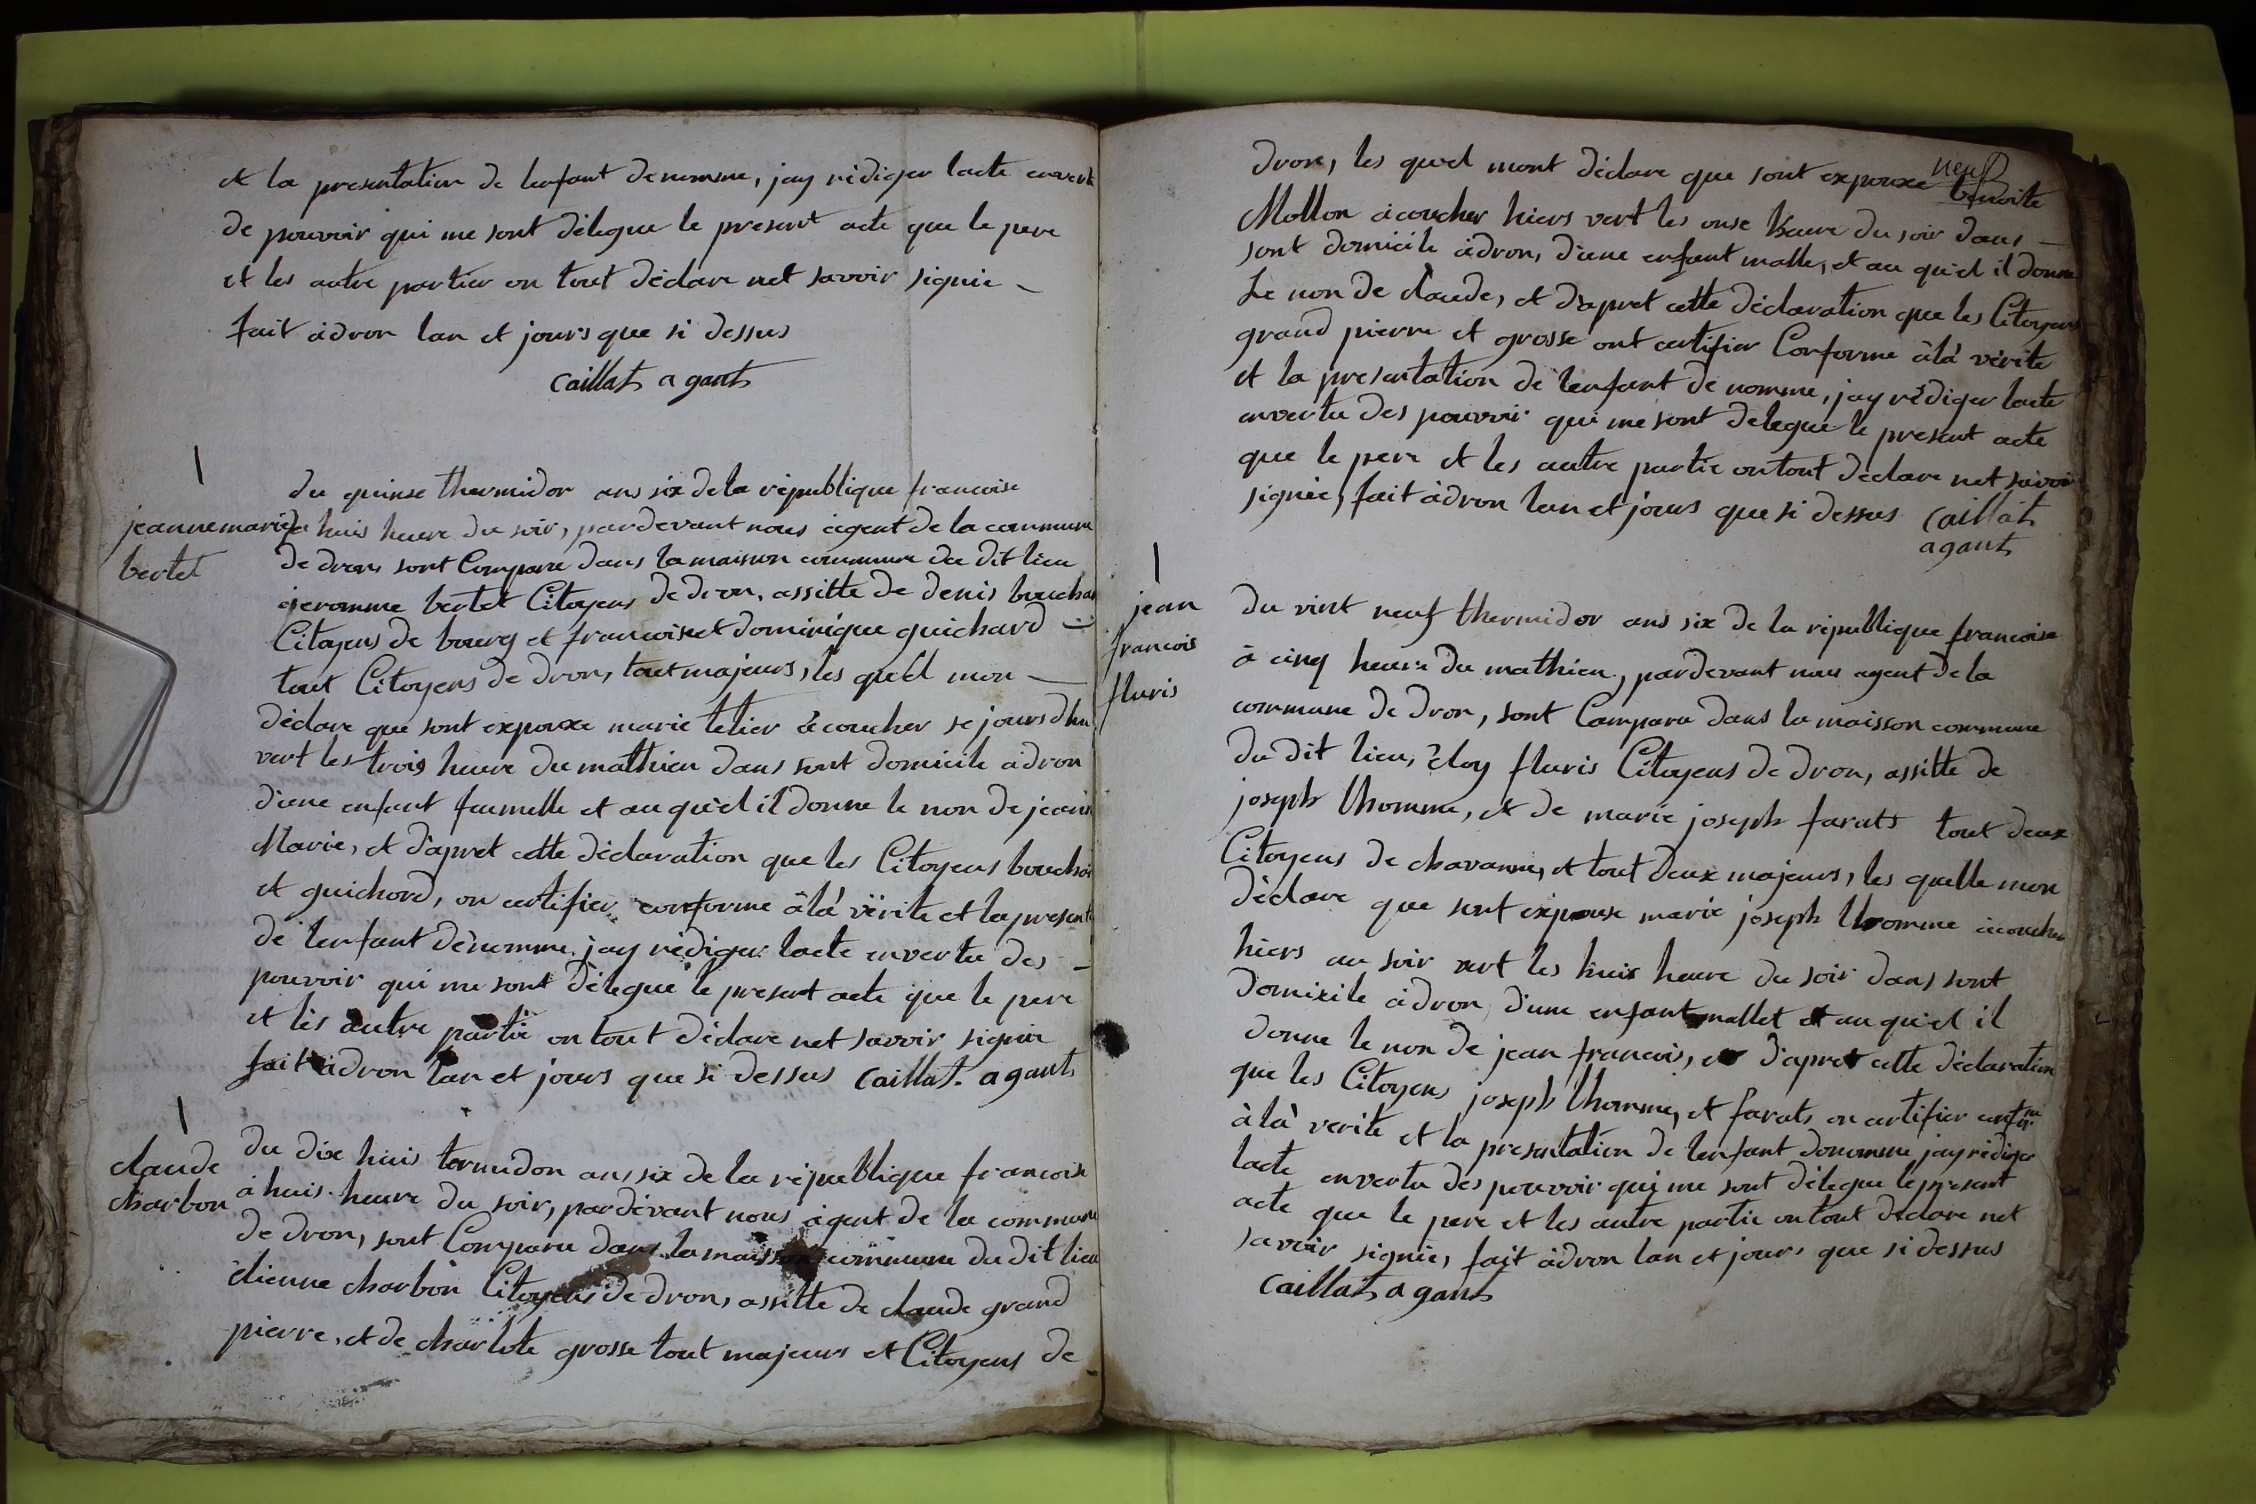 et la presentation de lenfant denomme, jay rèdiger lacte envertu
de pouvoir qui me sont dèlegue le present acte que le pere
et les autre partier on tout dèclare net savoir signie
fait àdron lan et jours que si dessus
caillat agant
jeannemarie
bertet
du quinse thermidor ans six de la rèpublique francoise
a huis heure du soir, pardevant nous àgent de la commune
de dron, sont Comparu dans la maison commune du dit lieu
geromme bertet Citoyens de dron, assitte de denis bouchar
Citoyens de bourg et francoiset dominique guichard
tout Citoyens de dron, tout majeurs, les quèl mon
dèclare que sont expouxe marie telier àcoucher se jours dhu
vert les trois heure du mathien dans sont domicile àdron
d'une enfant feumelle et au quèl il donne le non de jeann
Marie, et d'apret cette dèclaration que les Citoyens bouchar
et guichard, on certifier conforme àlà vèrite et la present
de lenfant dènomme jay rèdiger lacte envertu des
pouvoir qui me sont dèlegue le present acte que le pere
et lès autre partie on tout dèclare net savoir signie
fait àdron lan et jours que si dessus caillat agant
claude
charbon
du dix huis termidon ans six de la rèpublique francoise
à huis heure du soir, pardèvant nous àgent de la commune
de dron, sont Comparu dans la maisson commune du dit lieu
ètienne charbon Citoyens de dron, assitte de claude grand
pierre, et de charlote grosse tout majeurs et Citoyens de
neuf
dron, les quèl mont dèclare que sont expouxe benoite
Mollon àcoucher hiers vert les onse heure du soir dans
sont domicile àdron, d'une enfant malle, et au qu'èl il donne
Le non de claude, et d'apret cette dèclaration que les Citoyens
grand pierre et grosse ont certifier Conforme àlà vèrite
et la presentation de lenfant de nomme, jay rèdiger lacte
envertu des pouvoir qui me sont delegue le present acte
que le pere et les autre partie ontout dèclare net savoir
signie, fait àdron lan et jours que si dessus caillat
agant
jean
francois
fluris
du vint neuf thermidor ans six de la rèpublique francoise
à cinq heure du mathien, pardevant nous agent de la
commune de dron, sont Comparu dans la maisson commune
du dit lieu, èloy fluris Citoyens de dron, assitte de
joseph lhomme, et de marie joseph farats tout deux
Citoyens de chavanne, et tout deux majeurs, les quelle mon
dèclare que sont expouse marie joseph lhomme àcoucher
hiers au soir vert les huis heure du soir dans sont
domixile àdron d'une enfant mallet et au qu'èl il
donne le non de jean francois, et d'apret cette dèclaration
que les Citoyens joseph lhomme, et farats on certifier confor me
àlà verite et la presentation de lenfant denomme jay rèdiger
lacte envertu des pouvoir qui me sont dèlegue le present
acte que le pere et les autre partie ontout dèclare net
savoir signie, fait àdron lan et jours que si dessus
caillat agant